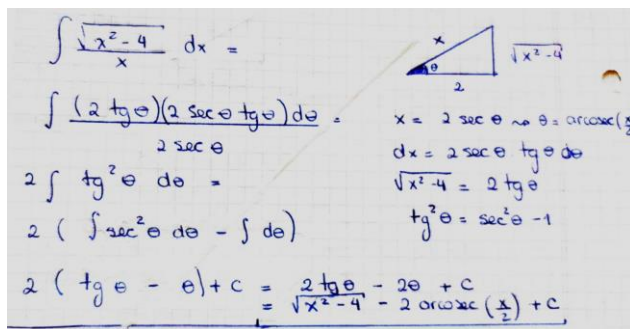 ∫ √(x² - 4) / x dx =
∫ (2 tgθ)(2 secθ tgθ) dθ / 2 secθ =
2 ∫ tg²θ dθ =
2 ( ∫ sec²θ dθ - ∫ dθ)
2 ( tgθ - θ) + C = 2 tgθ - 2θ + C
= √(x² - 4) - 2 arcosec (x/2) + C
x
θ
√(x² - 4)
2
x = 2 secθ ⇝ θ = arcosec(x/2
dx = 2 secθ tgθ dθ
√(x² - 4) = 2 tgθ
tg²θ = sec²θ - 1